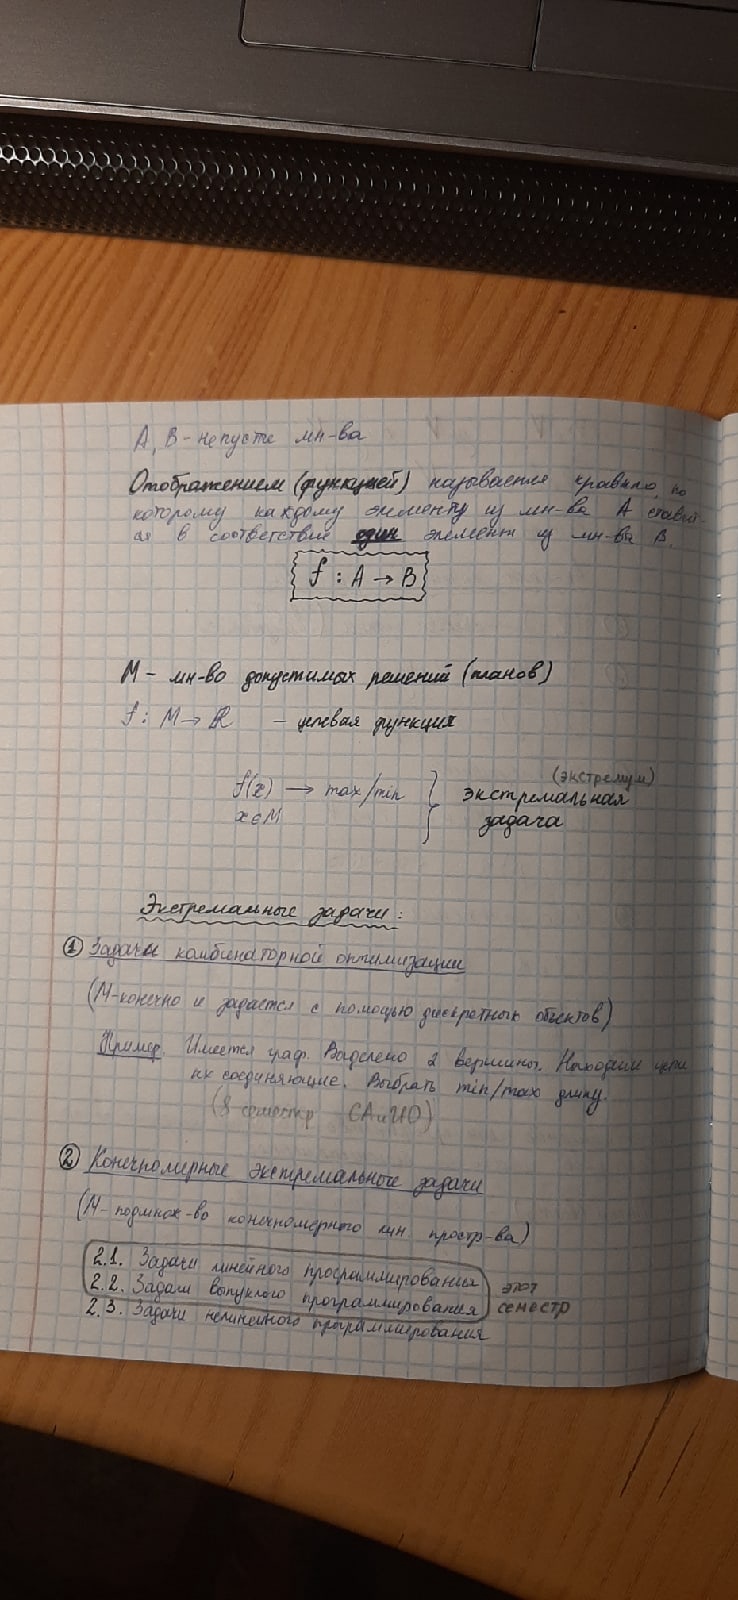 А, В - непусте мн-ва
Отображением (функцией) называется правило, по
которому каждому элементу из мн-ва А ставит-
ся в соответствие один элемент из мн-ва В.
f : A → B
М - мн-во допустимых решений (планов)
f : M → R - целевая функция
(экстремум)
f(x) → max/min } экстремальная
x ∈ M задача
Экстремальные задачи:
① Задачи комбинаторной оптимизации
(М-конечно и задаётся с помощью дискретных объектов)
Пример. Имеется граф. Выделено 2 вершины. Находим цепи
их соединяющие. Выбрать min/max длину.
(8 семестр САиИО)
② Конечномерные экстремальные задачи
(М- подмнож-во конечномерного лин. простр-ва)
2.1. Задачи линейного программирования
2.2. Задачи выпуклого программирования этот семестр
2.3. Задачи нелинейного программирования